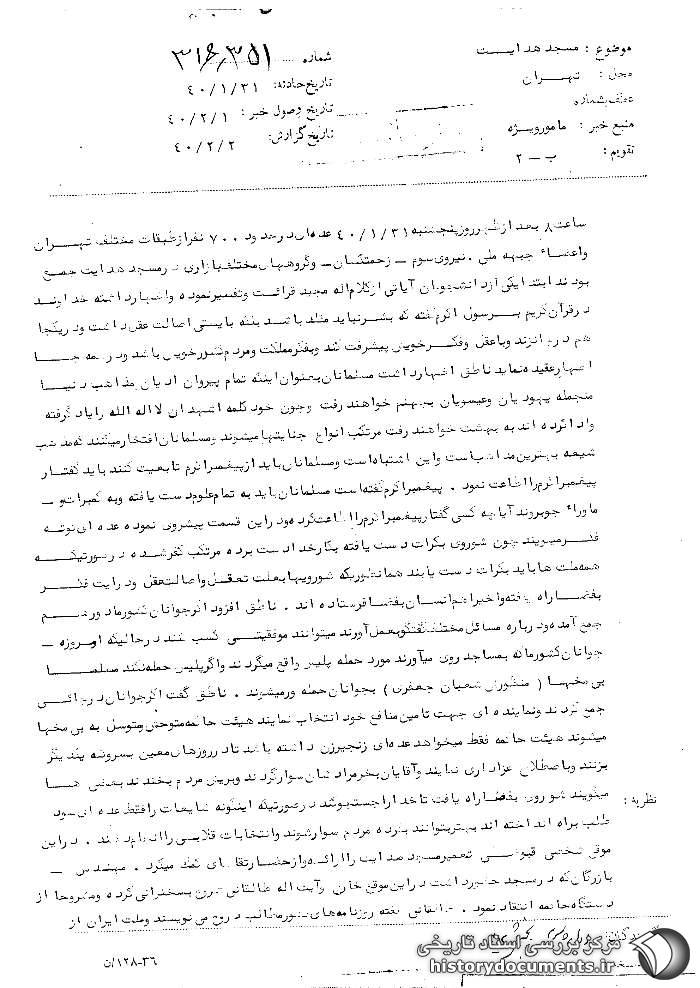 موضوع : مسجد هدایت
شماره ۳۱۶٫۳۵۱
محل : تهران
تاریخ حادثه: ۴۰/۱/۳۱
عطف بشماره
تاریخ وصول خبر : ۴۰/۲/۱
منبع خبر : مامور ویژه
تاریخ گزارش: ۴۰/۲/۲
تقویم : ب - ۲
ساعت ۸ بعد از ظهر روز پنجشنبه ۴۰/۱/۳۱ عده ای در حدود ۷۰۰ نفر از طبقات مختلف تهران
و اعضاء جبهه ملی . نیروی سوم - زحمتکشان - و گروههای مختلف بازاری در مسجد هدایت جمع
بودند ابتدا یکی از دانشجویان آیاتی از کلام اله مجید قرائت و تفسیر نموده و اظهار داشته خداوند
در قرآن کریم به رسول اکرم گفته که بشر نباید مقلد باشد بلکه بایستی اصالت عقل داشته
هم درجا نزند و با عقل و فکر خویش پیشرفت کند و بفکر مملکت و مردم کشور خویش باشد و در همه جا
اظهار عقیده نماید ناطق اظهار داشت مسلمانان بعنوان اینکه تمام پیروان ادیان و مذاهب دنیا
منجمله یهودیان و عیسویان بجهنم خواهند رفت و چون خود کلمه اشهد ان لا اله الله را یاد گرفته
و ادا کرده اند به بهشت خواهند رفت مرتکب انواع جنایتها میشوند و مسلمانان افتخار میکنند که مذهب
شیعه بهترین مذاهب است و این اشتباه است و مسلمانان باید از پیغمبر اکرم تابعیت کنند باید گفتار
پیغمبر اکرم را اطاعت نمود . پیغمبر اکرم گفته است مسلمانان باید به تمام علوم دست یافته و به کرات و -
ماوراء جو بروند آیا چه کسی گفتار پیغمبر اکرم را اطاعت کرده و در این قسمت پیشروی نموده عده ای کوته
فکر میگویند چون شوروی بکرات دست یافته بکار خدا دست برده مرتکب کفر شده در صورتیکه
همه ملت ها باید بکرات دست یابند همانطوریکه شورویها بعلت تعقل و اصالت تعقل
بفضا راه یافته و اخیرا هم انسان بفضا فرستاده اند . ناطق افزود اگر جوانان کشور ما دور هم
جمع آمده و درباره مسائل مختلف گفتگو بعمل آورند میتوانند موفقیتی کسب کنند در حالیکه امروزه -
جوانان کشور ما که بمساجد روی میآورند مورد حمله پلیس واقع میگردند و اگر پلیس حمله نکند مسلما
بی مخها ( منظورش شعبان جعفری ) بجوانان حمله ور میشوند . ناطق گفت اگر جوانان در جائی
جمع گردند و نماینده ای جهت تامین منافع خود انتخاب نمایند هیئت حاکمه متوحش و متوسل به بی مخها
میشوند هیئت حاکمه فقط میخواهد عده ای زنجیرزن داشته باشد تا در روزهای معین بسر و کله یکدیگر
بزنند و باصطلاح عزاداری نمایند و آقایان بخر مراد شان سوار گردند و بریش مردم بخندند بعضی ها
میگویند شوروی بفضا راه یافت تا خدا را جستجو کند در صورتیکه اینگونه شایعات را فقط عده ای سود
نظریه :
طلب براه انداخته اند بهتر بتوانند بگرده مردم سوار شوند و انتخابات قلابی را ادامه دهند . در این
موقع شخصی قبوض تعمیر مسجد هدایت را ارائه و از حضار تقاضای کمک میکرد . مهندس -
بازرگان که در مسجد حضور داشت در این موقع خارج و آیت اله طالقانی شروع بسخنرانی کرده و مشروحا از
دستگاه حاکمه انتقاد نمود . طالقانی گفته روزنامه های کشور مطالب دروغ می نویسند و ملت ایران از
۱۲۸-۳۶/ن
مرکز بررسی اسناد تاریخی
historydocuments.ir